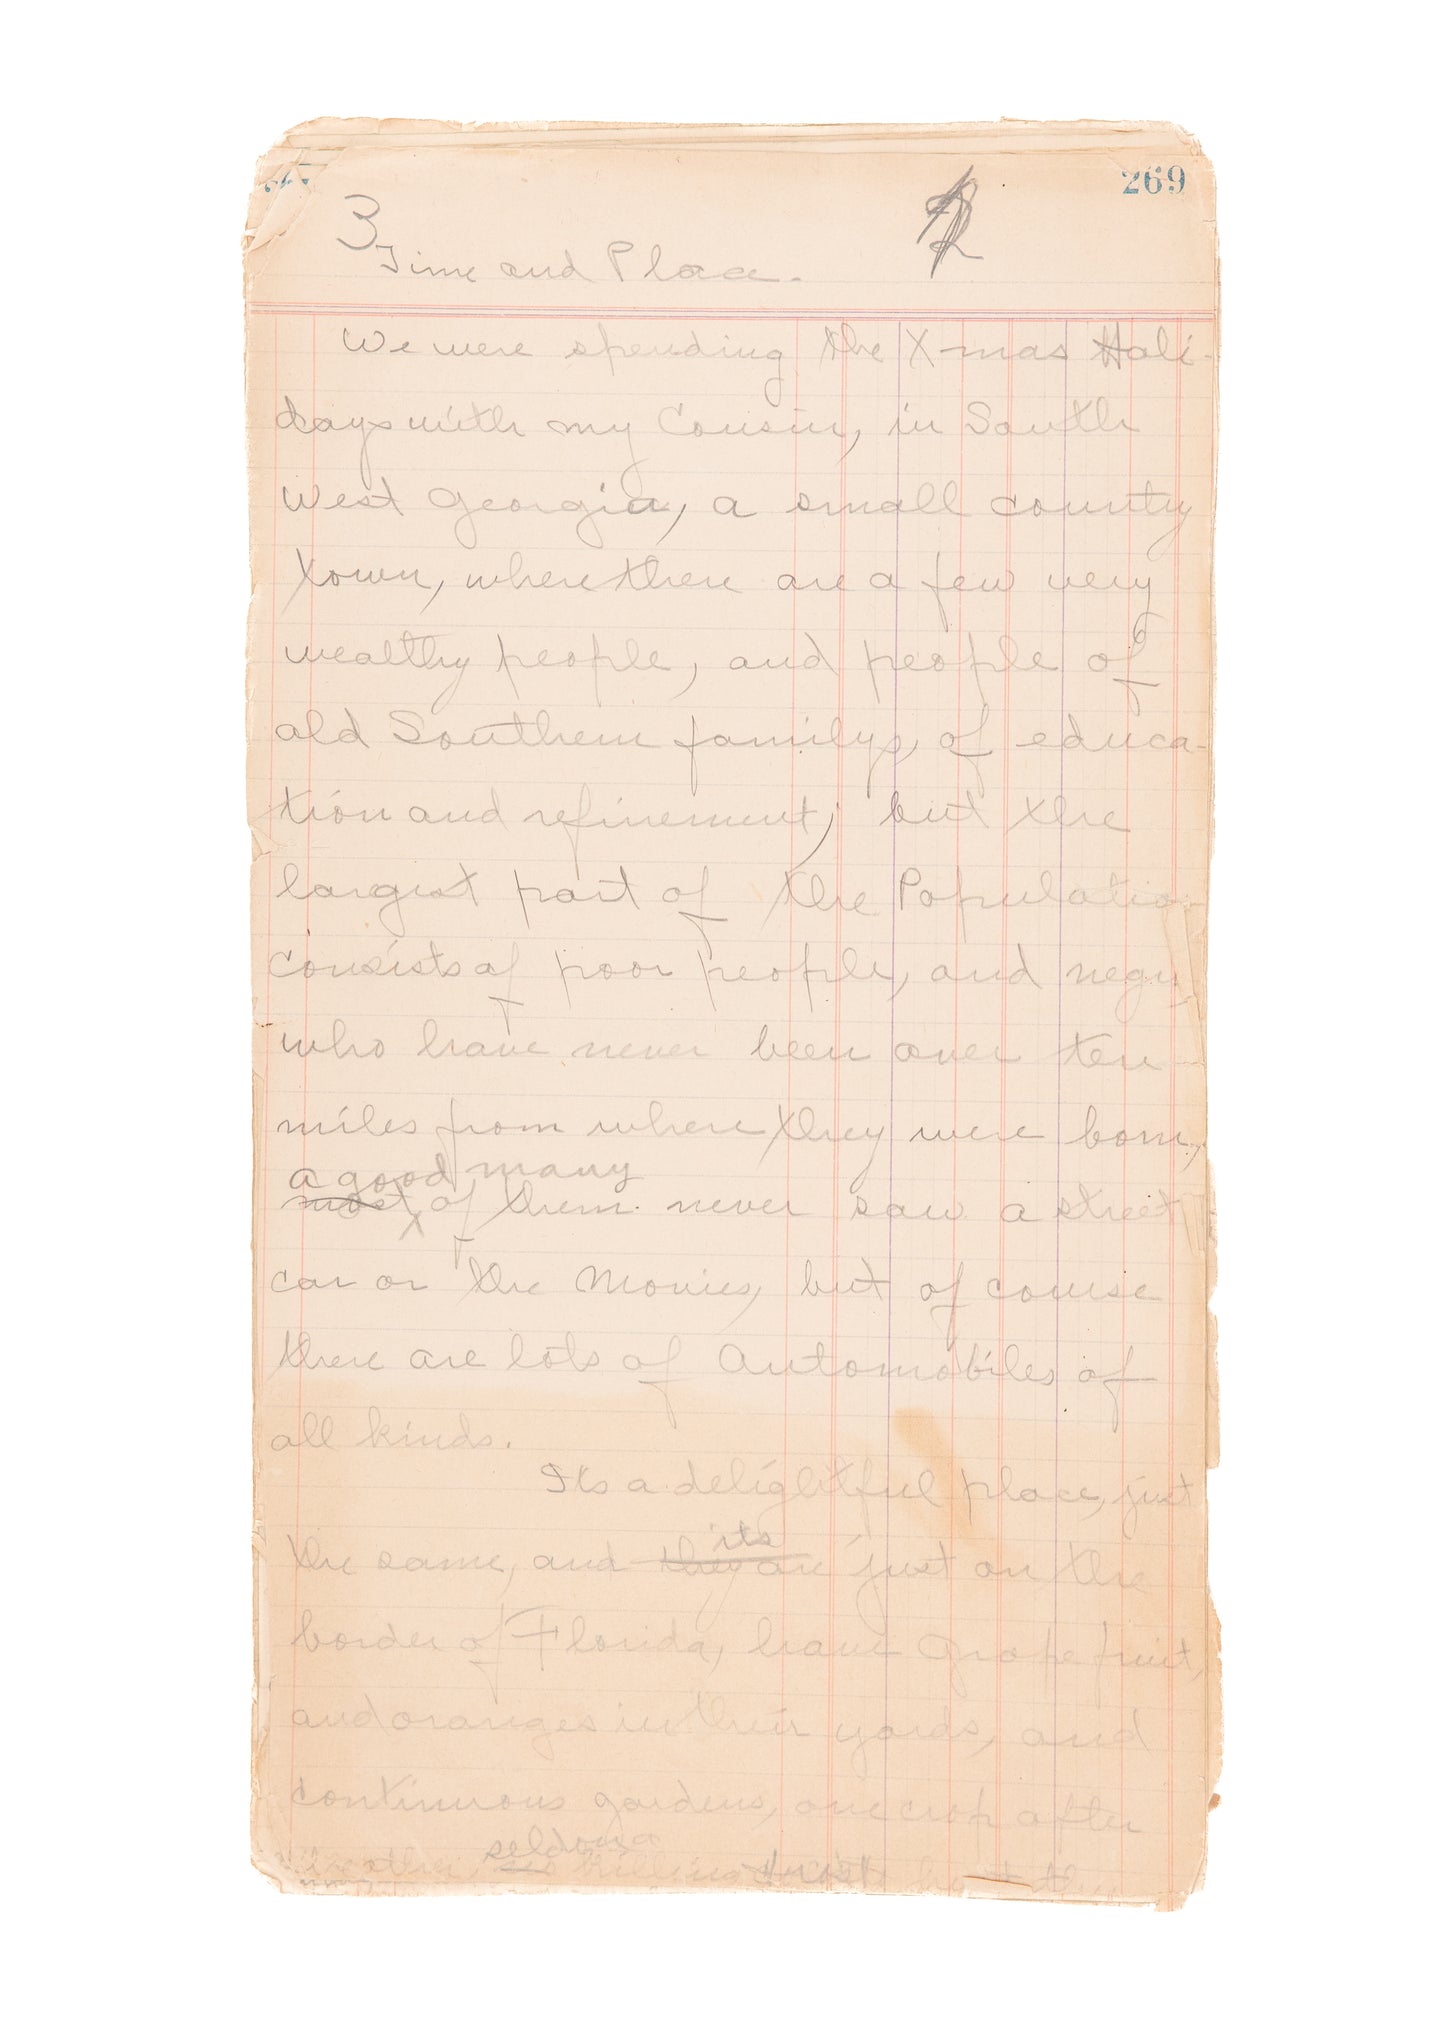 269
3
Time and Place.
We were spending the X-mas Holi-
days with my Cousin, in South
West Georgia, a small county
town, where there are a few very
wealthy people, and people of
old Southern familys, of educa-
tion and refinement, but the
largest part of the Populatio
consists of poor people, and
who have never been over ten
miles from where they were born,
a good many
most of them never saw a street
car or the Movies, but of course
there are lots of Automobiles of
all kinds.
Its a delightful place, just
its
the same, and they are just on the
border of Florida, have Grape fruit,
and oranges in their yards, and
continuous gardens, one crop after
seldom a
killing